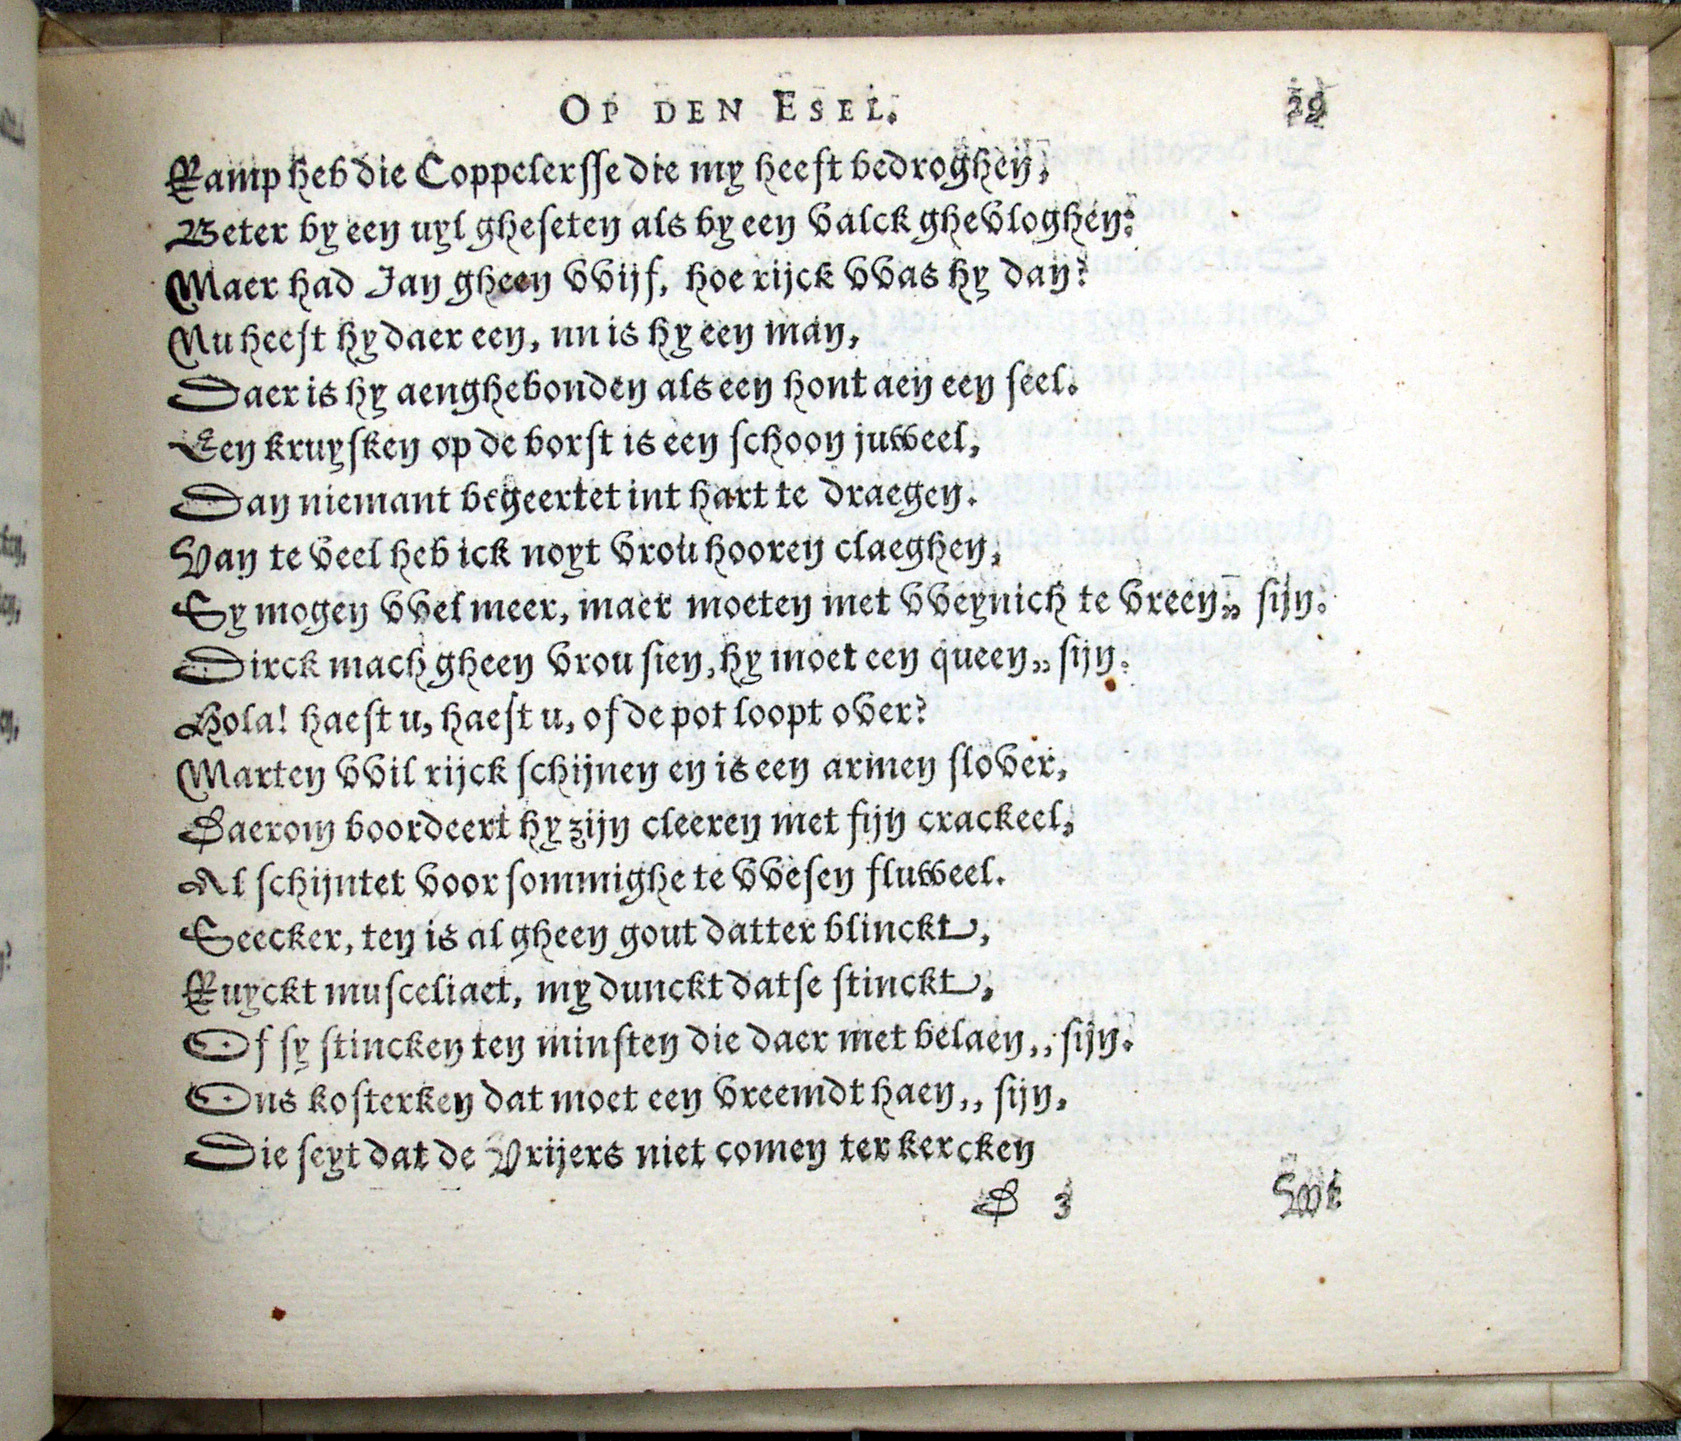 OP DEN ESEL. 29
Ramp heb die Coppelersse die my heeft bedroghen,
Beter by een uyl gheseten als by een valck ghevloghen:
Maer had Jan gheen vvijf, hoe rijck vvas hy dan?
Nu heeft hy daer een, nu is hy een man,
Daer is hy aenghebonden als een hont aen een seel.
Een kruysken op de borst is een schoon juweel,
Dan niemant begeertet int hart te draegen.
Van te veel heb ick noyt vrou hooren claeghen,
Sy mogen vvel meer, maer moeten met vveynich te vreen,, sijn.
Dirck mach gheen vrou sien, hy moet een queen,, sijn.
Hola! haest u, haest u, of de pot loopt over?
Marten vvil rijck schijnen en is een armen slover,
Daerom boordeert hy zijn cleeren met fijn crackeel,
Al schijntet voor sommighe te vvesen fluweel.
Seecker, ten is al gheen gout datter blinckt,
Ruyckt musceliaet, my dunckt datse stinckt,
Of sy stincken ten minsten die daer met belaen,, sijn.
Ons kosterken dat moet een vreemdt haen,, sijn,
Die seyt dat de Vrijers niet comen ter kercken
D 3 Wt